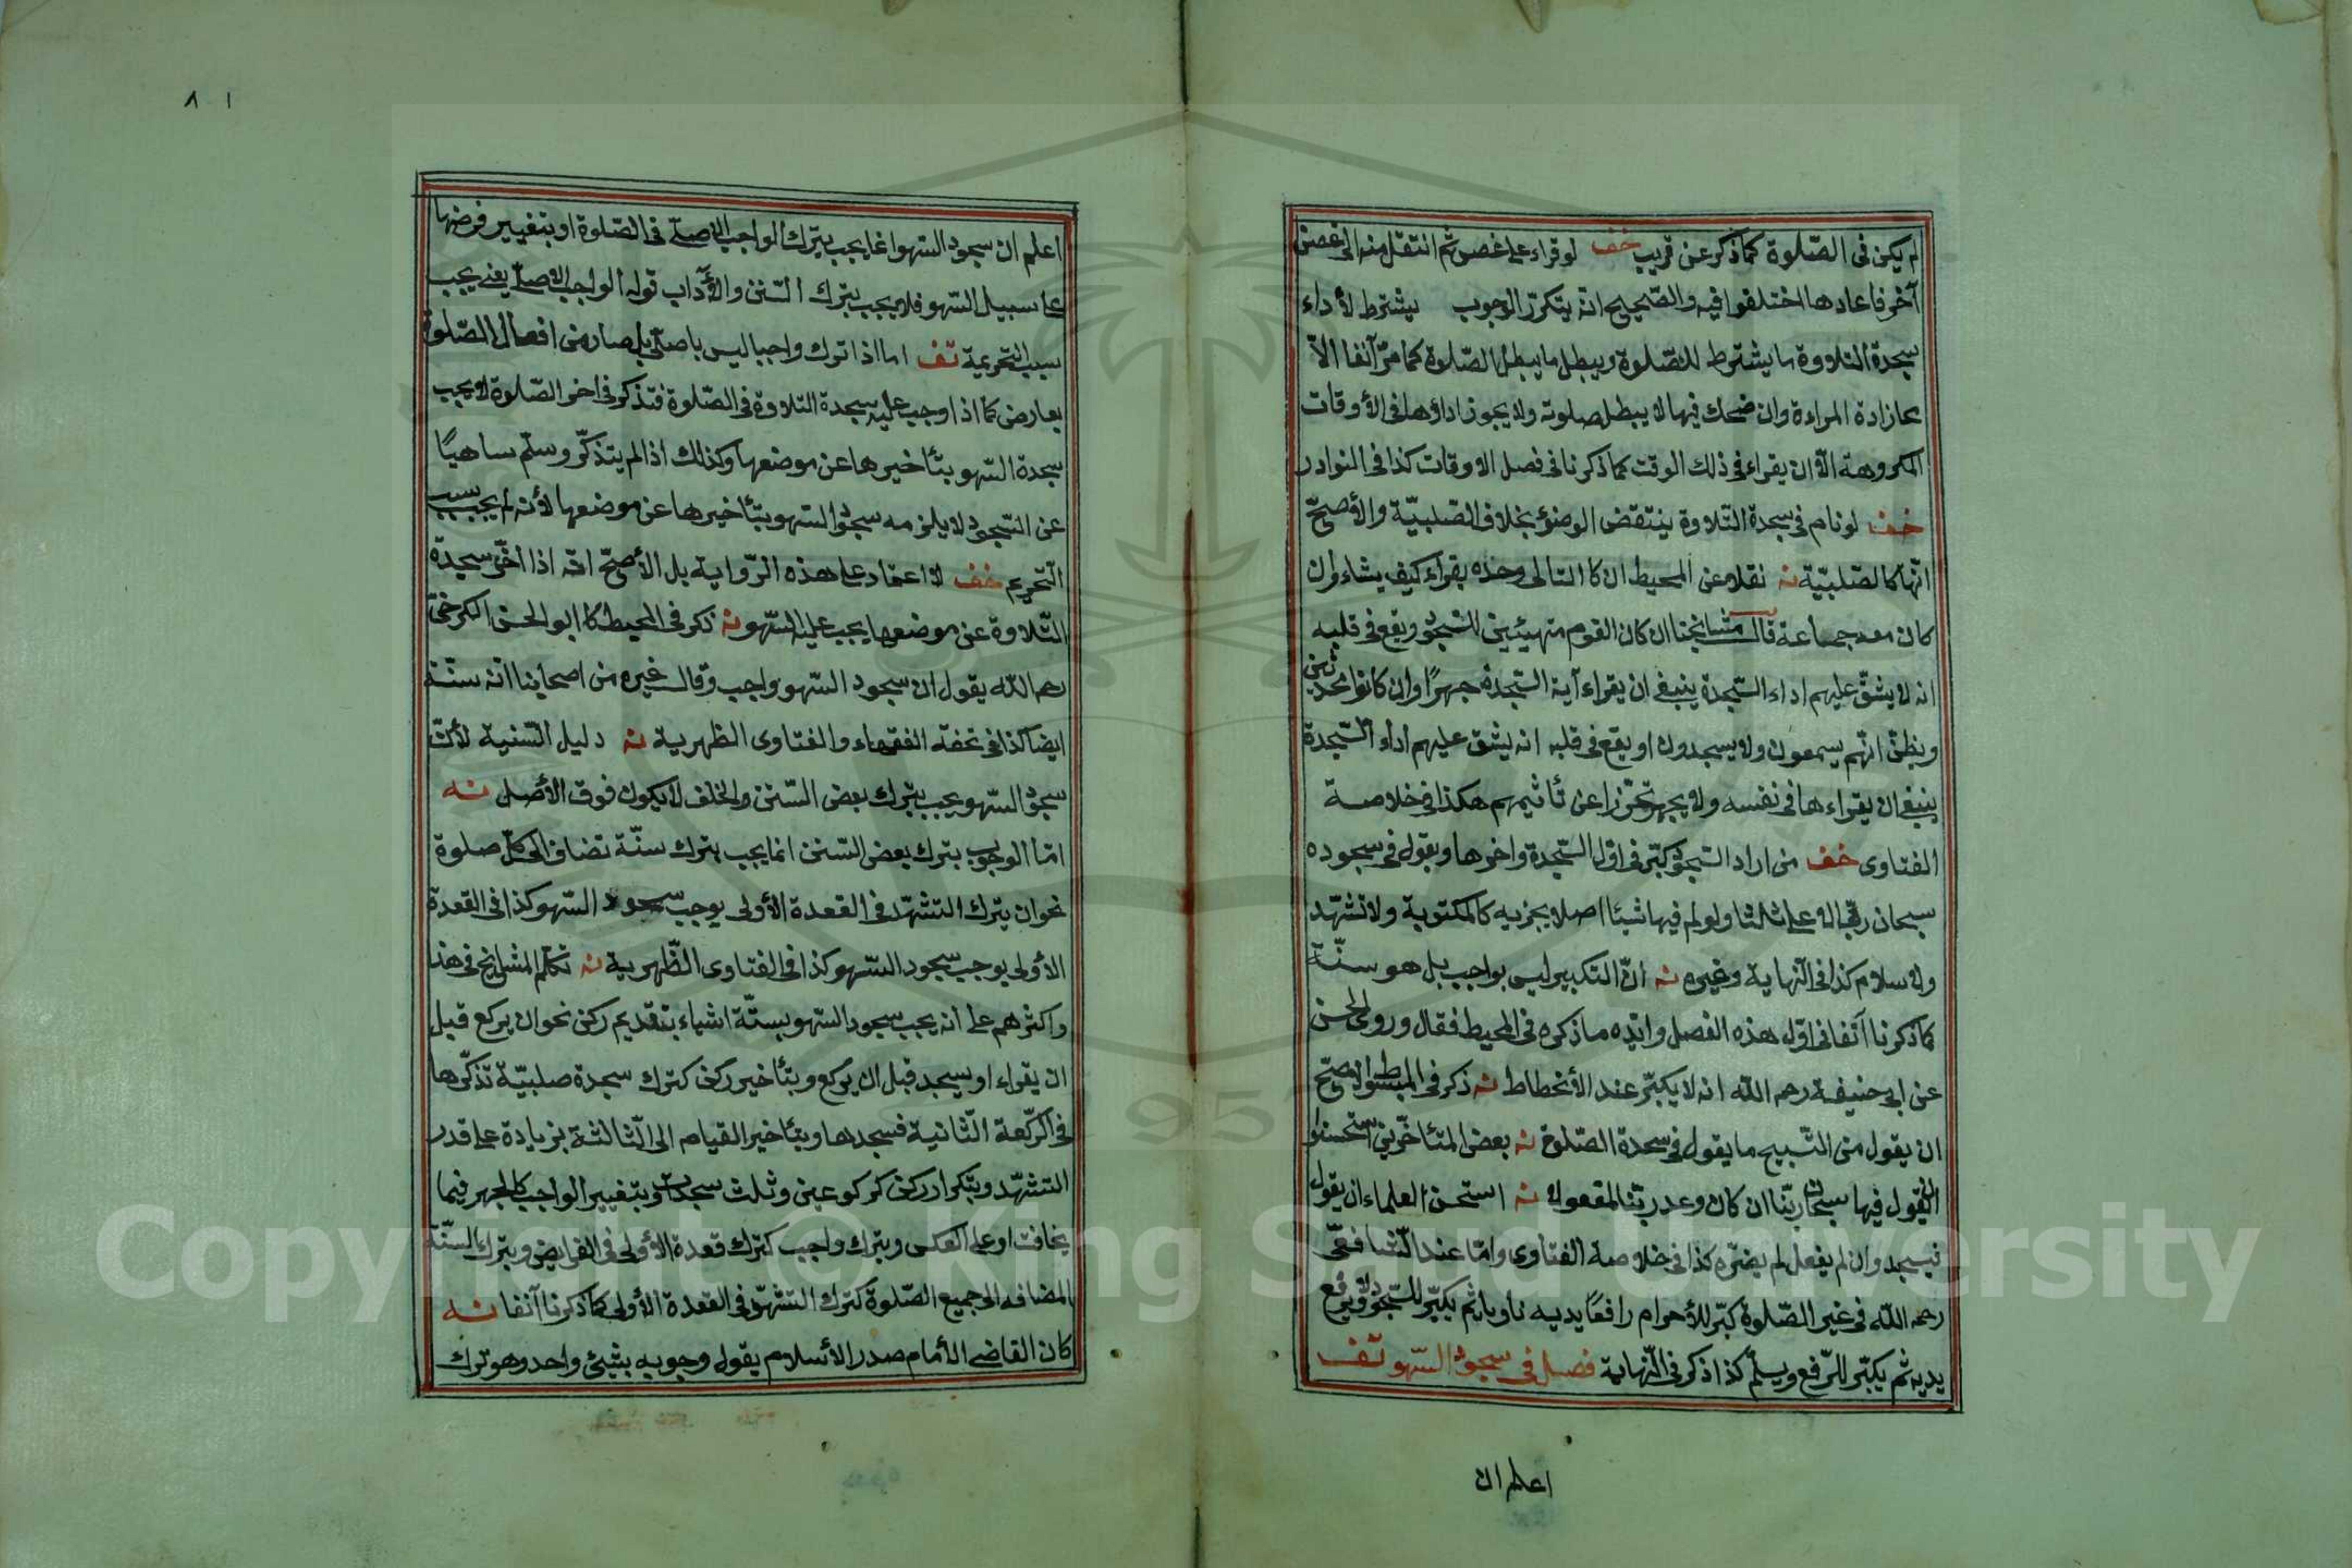 لم يكن فى الصّلوة كما ذكر عن قريب خف لو قراء على غصن ثم انتقل منه الى غصن
آخر فاعادها اختلفوا فيه والصّحيح انّه يتكرّر الوجوب يشترط لأداء
سجدة التلاوة ما يشترط للصّلوة ويبطل ما يبطل الصّلوة كما مرّ آنفا الاّ
محازادة المراءة وان ضحك فيها لا يبطل صلوته ولا يجوز اداؤها فى الأوقات
المكروهة الاّ ان يقراء فى ذلك الوقت كما ذكرنا فى فصل الاوقات كذا فى النوادر
خف لو نام فى سجدة التّلاوة ينتقض الوضؤ بخلاف الصّلبيّة والأصحّ
انّها كالصّلبيّة نه نقلا عن المحيط ان كا التالى وحذه يقراء كيف يشاء وان
كان معه جماعة قال مشايخنا ان كان القوم متهيئين للسّجود ويقع فى قلبه
انه لا يشقّ عليهم اداء السّجدة ينبغى ان يقراء آية السّجدة جهرًا وان كانوا محدثين
ويظنّ انّهم يسمعون ولا يسجدون او يقع فى قلبه انه يشق عليهم اداء السّجدة
ينبغى ان يقراءها فى نفسه ولا يجهر تحرّزا عن تأثيمهم هكذا فى خلاصة
الفتاوى خف من اراد السّجود كبّر فى اوّل السّجدة واخرها ويقول فى سجوده
سبحان ربّى الاعلى ثلثا ولو لم فيها شيئا اصلا يجزيه كالمكتوبة ولا تشهّد
ولا سلام كذا فى النّهاية وغيره نه انّ التكبير ليس بواجب بل هو سنّة
كما ذكرنا آنفا فى اوّل هذه الفصل وايّده ما ذكره فى المحيط فقال وروى الحسن
عن ابى حنيفة رحمه اللّه انه لا يكبّر عند الأنحطاط نه ذكر فى المبسوط الاصحّ
ان يقول من التّسبيح ما يقول فى سجدة الصّلوة نه بعض المتأخّرين استحسنوا
ان يقول فيها سبحان ربّنا ان كان وعد ربّنا لمفعولا نه استحسن العلماء ان يقول
فيسجد وان لم يفعل لم يضرّه كذا فى خلاصة الفتاوى وامّا عند الشّافعىّ
رحمه اللّه فى غير الصّلوة كبّر للأحرام رافعًا يديه ناويا ثم يكبّر للسّجود ولا يرفع
يديه ثم يكبّر للرّفع ويسلّم كذا ذكر فى النّهاية فصل فى سجود السّهو تف
اعلم ان
٨١
اعلم ان سجود السّهو انما يجب بترك الواجب الاصلّى فى الصّلوة او بتغيير فرضها
على سبيل السّهو فلا يجب بترك السّنن والأداب قوله الواجب الاصلّى يعنى يجب
بسبب التحريمة تف اما اذا ترك واجبا ليس باصلّى بل صار من افعال الصّلوة
بعارض كما اذا وجب عليه سجدة التلاوة فى الصّلوة فتذكر فى اخر الصّلوة لا يجب
سجدة السّهو بتأخيرها عن موضعها وكذلك اذا لم يتذكّر وسلّم ساهيًا
عن السّجود لا يلزمه سجود السّهو بتأخيرها عن موضعها لأنه لم يجب بسبب
التّحريم خف لا اعتماد على هذه الرّواية بل الأصحّ انّه اذا أخّر سجدة
التّلاوة عن موضعها يجب عليه السّهو نه ذكر فى المحيط كا ابو الحسن الكرخىّ
رحمه اللّه يقول ان سجود السّهو واجب وقال غيره من اصحابنا انّه سنّة
ايضا كذا فى تحفة الفقهاء والفتاوى الظهرية نه دليل السّنية لأنّ
سجود السّهو يجب بترك بعض السّنن والخلف لا يكون فوق الأصل نه
امّا الوجوب بترك بعض السّنن انما يجب بترك سنّة تضاف الى كلّ صلوة
نحو ان يترك التشهّد فى القعدة الأولى يوجب سجود السّهو كذا فى القعدة
الأولى يوجب سجود السّهو كذا فى الفتاوى الظّهرية نه تكلّم المشايخ فى هذا
واكثرهم على انه يجب سجود السّهو بستّة اشياء بتقديم ركن نحو ان يركع قبل
ان يقراء او يسجد قبل ان يركع وبتأخير ركن كترك سجدة صلبيّة تذكّرها
فى الرّكعة الثّانية فسجدها وبتأخير القيام الى الثّالثة بزيادة على قدر
التشهّد وبتكرار ركن كركوعين وثلث سجدات وبتغيير الواجب كالجهر فيما
يخافت او على العكس وبترك واجب كترك قعدة الأولى فى الفرايض وبترك السنّة
المضافه الى جميع الصّلوة كترك التشهّد فى القعدة الأولى كما ذكرنا آنفا نه
كان القاضى الأمام صدر الأسلام يقول وجوبه بشيئ واحد وهو ترك